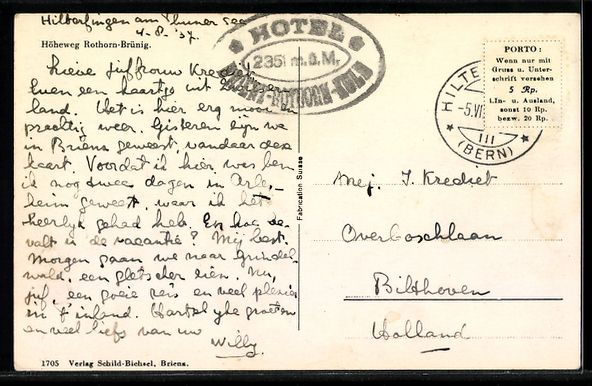 Hilterfingen am Thuner see
4-8-'37.
Höheweg Rothorn-Brünig.
Lieve juffrouw Krediet
een kaartje uit
land. Het is hier erg mooi
prachtig weer. Gisteren zijn we
in Brienz geweest, vandaar deze
kaart. Voordat ik hier was ben
ik nog twee dagen in
geweest, waar ik het
heerlijk gehad heb. En hoe be-
valt u de vacantie? Mij best.
Morgen gaan we naar Grindel-
wald, een gletscher zien. Nu,
juf, een goeie reis en veel plezier
in Finland. Hartelijke groeten
en veel liefs van uw
Willy.
1705 Verlag Schild-Bichsel, Brienz.
HOTEL
2351 m.ü.M.
ROTHORN-KULM
Fabrication Suisse
PORTO:
Wenn nur mit
Gruss u. Unter-
schrift versehen
5 Rp.
In- u. Ausland,
sonst 10 Rp.
bezw. 20 Rp.
HILTE
-5.VI
III
(BERN)
Mej. J. Krediet
Overboschlaan
Bilthoven
Holland